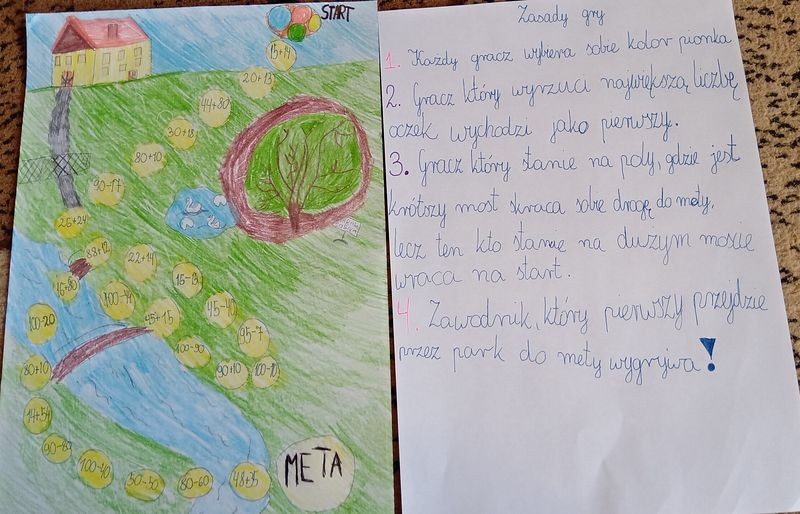 START
15+14
20+13
44+80
30+18
80+10
90-17
26+24
88+12
16+80
22+14
100-41
16-13
45+15
45-40
95-7
100-20
100-90
90+10
100-10
80+10
14+54
100-40
50-50
80-60
48+35
META
Zasady gry
1. Każdy gracz wybiera sobie kolor pionka
2. Gracz który wyrzuci największą liczbę
oczek wychodzi jako pierwszy.
3. Gracz który stanie na poly, gdzie jest
krótszy most skraca sobie drogę do mety,
lecz ten kto stanie na dużym moście
wraca na start.
4. Zawodnik, który pierwszy przejdzie
przez park do mety wygrywa!